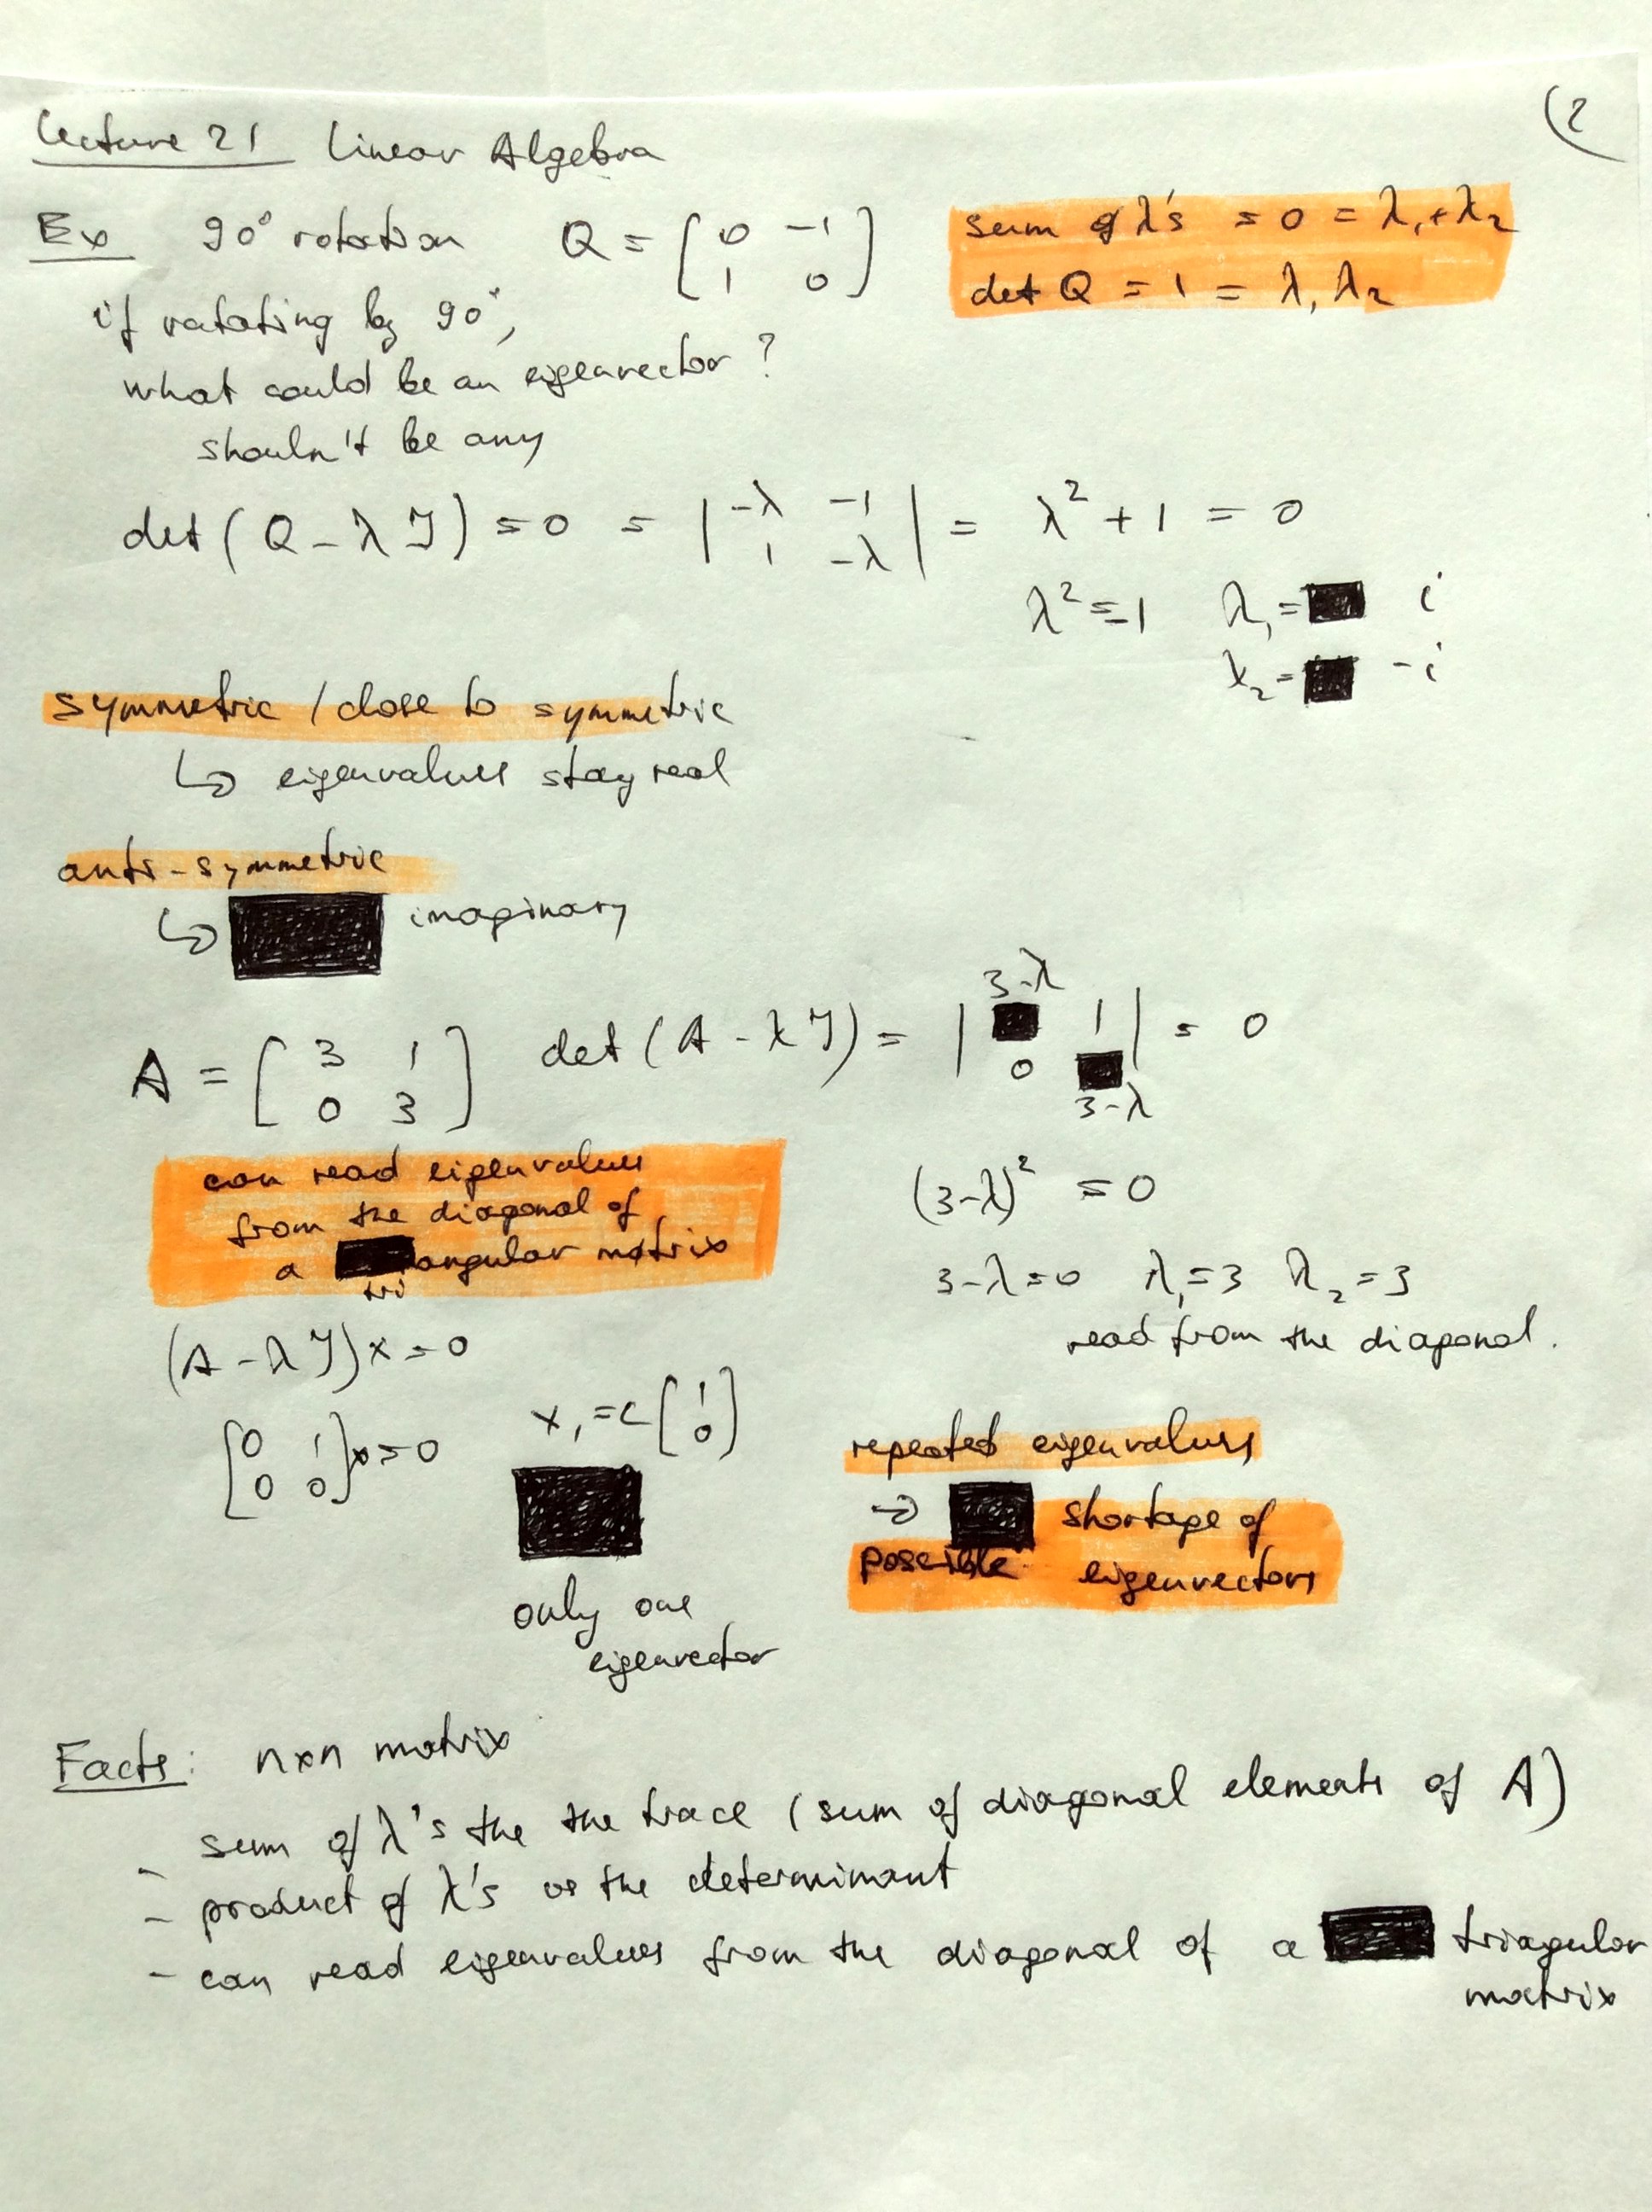 (2
Lecture 21 Linear Algebra
Ex 90° rotation Q = [0 -1
1 0]
sum of λ's = 0 = λ₁+λ₂
det Q = 1 = λ₁ λ₂
if rotating by 90°,
what could be an eigenvector?
shouln't be any
det(Q - λI) = 0 = |-λ -1
1 -λ| = λ² + 1 = 0
λ² = -1 λ₁ = i
λ₂ = -i
symmetric / close to symmetric
↳ eigenvalues stay real
anti-symmetric
↳ imaginary
A = [3 1
0 3]
det(A - λI) = |3-λ 1
0 3-λ| = 0
can read eigenvalues
from the diagonal of
a triangular matrix
(3-λ)² = 0
3-λ=0 λ₁=3 λ₂=3
read from the diagonal.
(A - λI)x = 0
[0 1
0 0]x = 0
x₁ = c[1
0]
only one
eigenvector
repeated eigenvalues
→ shortage of
possible eigenvectors
Facts: nxn matrix
- sum of λ's the the trace (sum of diagonal elements of A)
- product of λ's is the determinant
- can read eigenvalues from the diagonal of a triagular
matrix